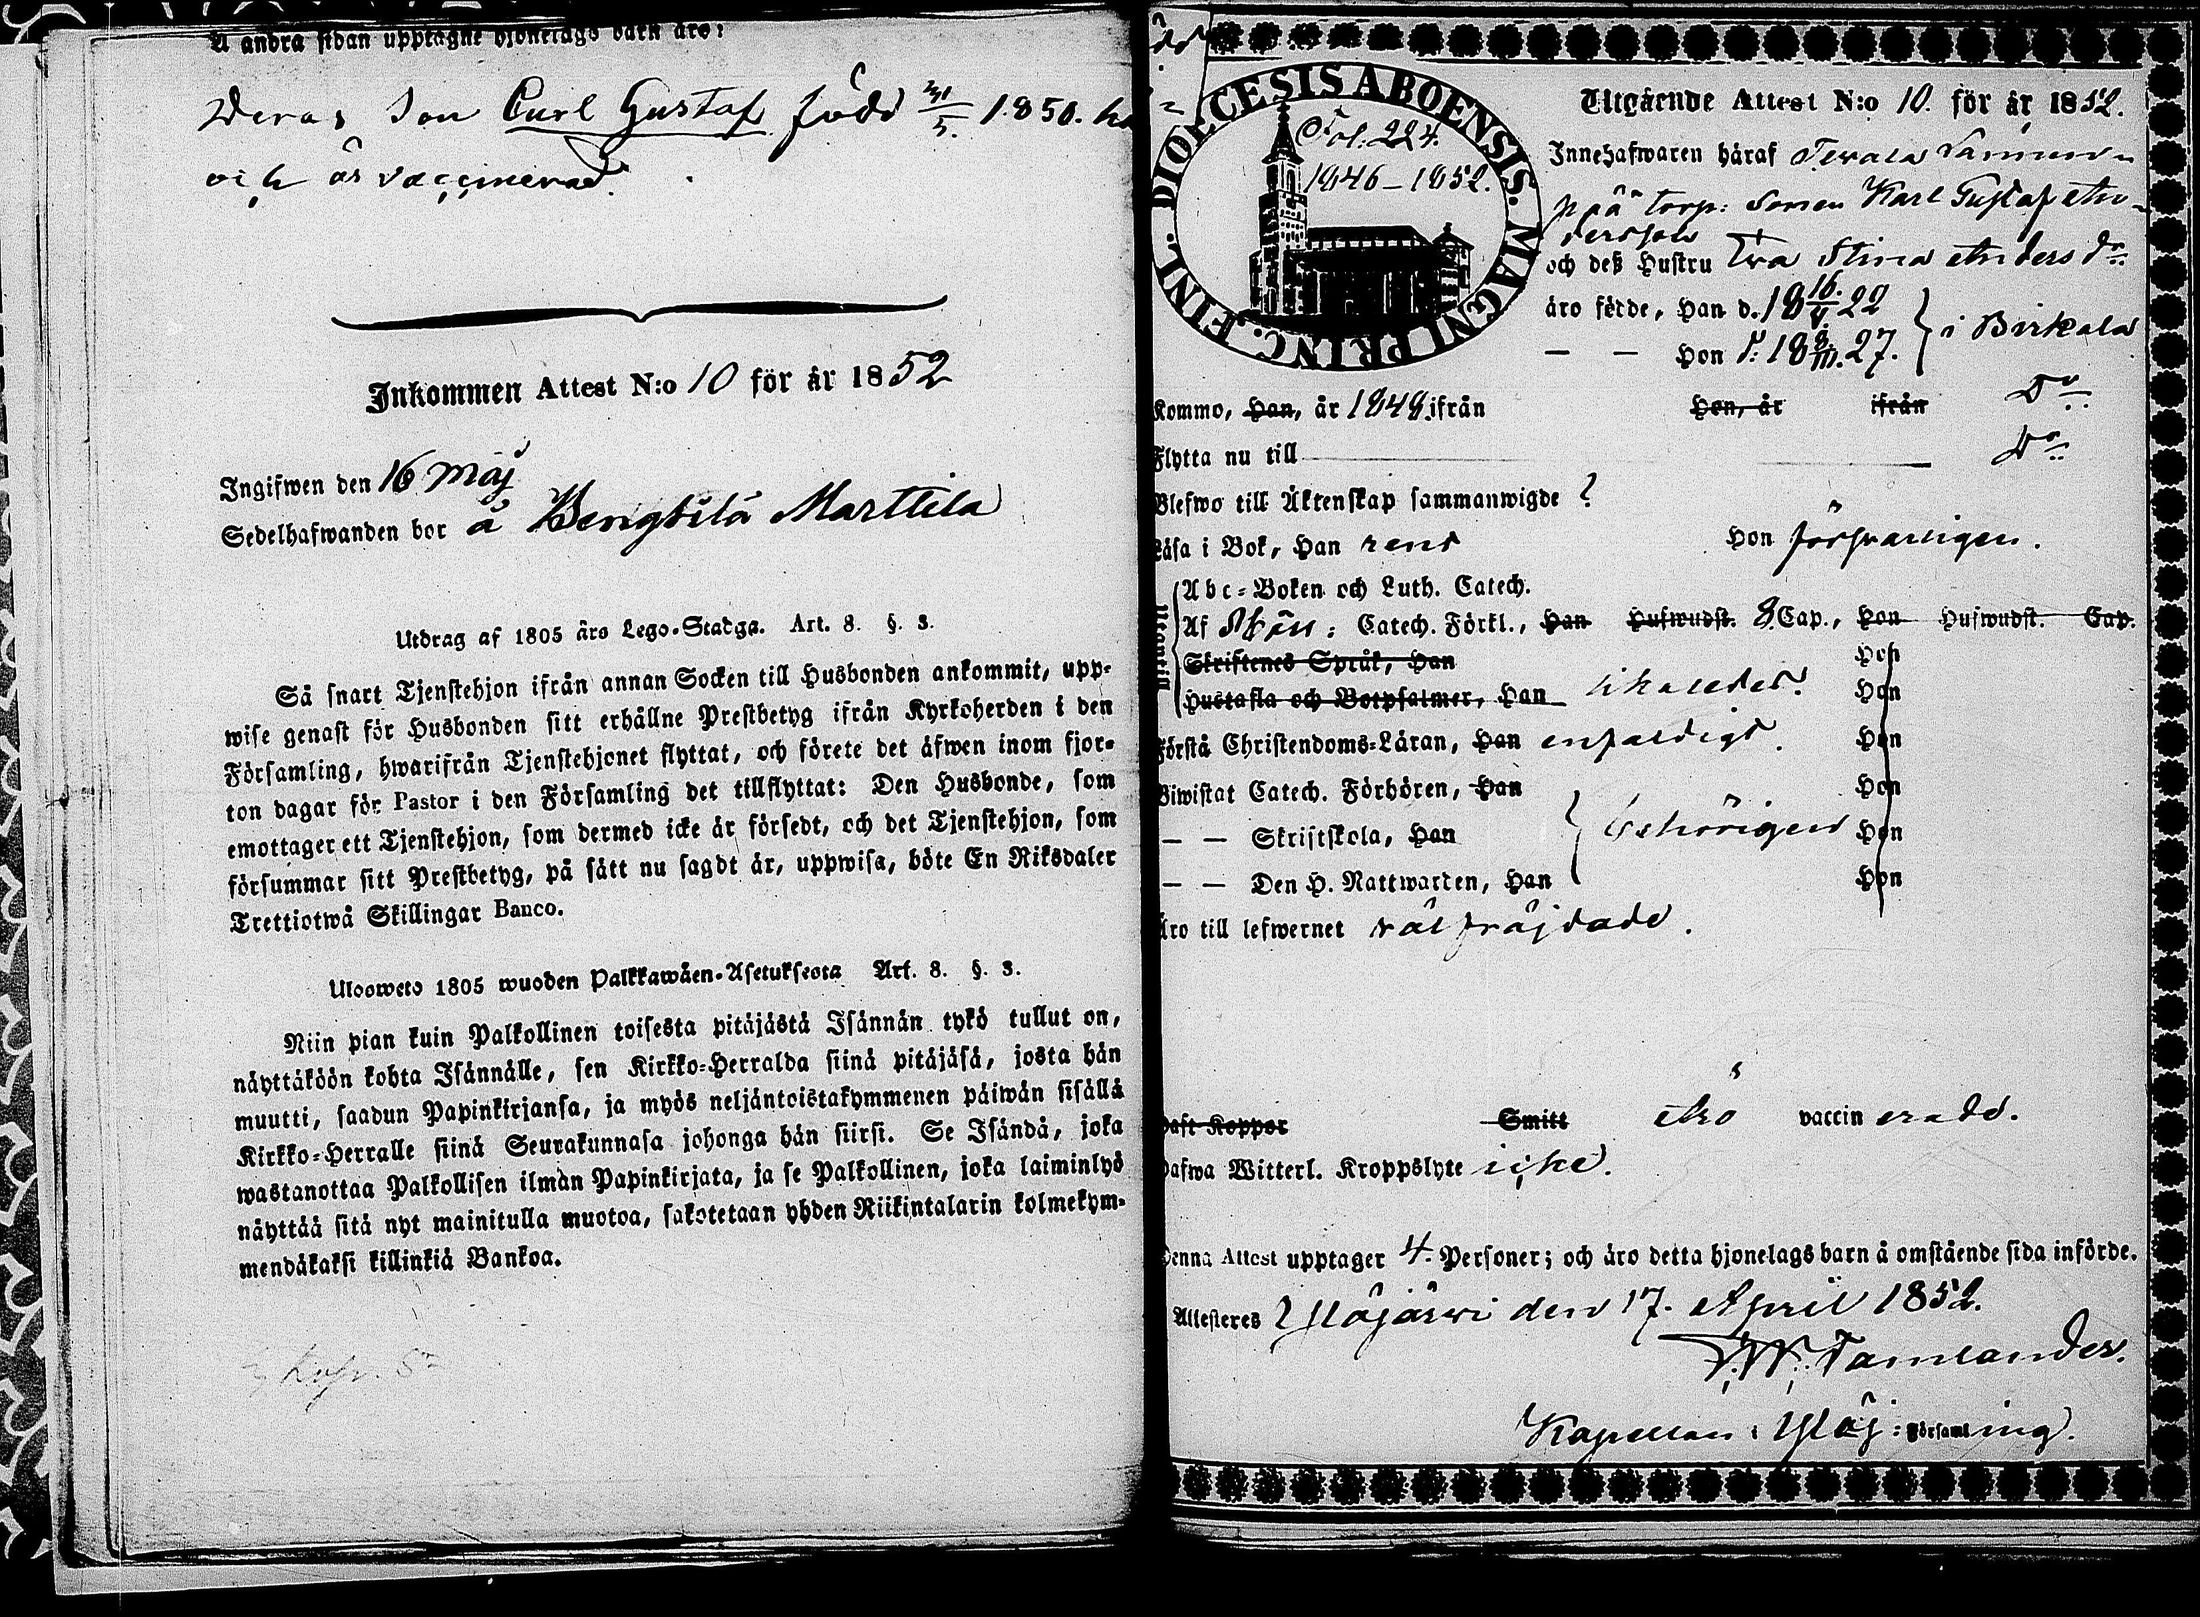 Å andra sidan upptagne hjonelags barn äro:
Deras Son Carl Gustaf född 31/5. 1850.
och är vaccinerad.
Inkommen Attest N:o 10 för år 1852
Ingifwen den 16 Maj
Sedelhafwanden bor å Bengtilä Marttila
Utdrag af 1805 års Lego-Stadga. Art. 8. §. 3.
Så snart Tjenstehjon ifrån annan Socken till Husbonden ankommit, upp-
wise genast för Husbonden sitt erhållne Prestbetyg ifrån Kyrkoherden i den
Församling, hwarifrån Tjenstehjonet flyttat, och förete det äfwen inom fjor-
ton dagar för Pastor i den Församling det tillflyttat: Den Husbonde, som
emottager ett Tjenstehjon, som dermed icke är försedt, och det Tjenstehjon, som
försummar sitt Prestbetyg, på sätt nu sagdt är, uppwisa, böte En Riksdaler
Trettiotwå Skillingar Banco.
Ulosweto 1805 wuoden Palkkawäen-Asetuksesta Art. 8. §. 3.
Niin pian kuin Palkollinen toisesta pitäjästä Isännän tykö tullut on,
näyttäköön kohta Isännälle, sen Kirkko-Herralda siinä pitäjäsä, josta hän
muutti, saadun Papinkirjansa, ja myös neljäntoistakymmenen päiwän sisällä
Kirkko-Herralle siinä Seurakunnasa johonga hän siirsi. Se Isändä, joka
wastanottaa Palkollisen ilman Papinkirjata, ja se Palkollinen, joka laiminlyö
näyttää sitä nyt mainitulla muotoa, sakotetaan yhden Riikintalarin kolmekym-
mendäkaksi killinkiä Bankoa.
DIOECESIS ABOENSIS. MAGNI PRINC. FINL.
Fol. 224.
1846-1852.
Utgående Attest N:o 10. för år 1852.
Innehafwaren häraf
på torp: Sonen Karl Gustaf An-
dersson
och deß Hustru Ewa Stina Anders dr
äro födde, Han d. 18 16/V 22
— — Hon d: 18 8/III. 27. } i Birkala
Kommo, Han, år 1848 ifrån Hon, år ifrån Do
Flytta nu till Do
Blefwo till Äktenskap sammanwigde ?
Läsa i Bok, Han rent Hon förswarligen.
Abc-Boken och Luth. Catech.
Af Catech. Förkl., Han Hufwudst. 8 Cap., Hon Hufwudst. Cap.
Skriftenes Språk, Han Hon
Hustafla och Botpsalmer, Han likaledes. Hon
Förstå Christendoms-Läran, Han enfaldigt. Hon
Biwistat Catech. Förhören, Han Hon
— — Skriftskola, Han behörigen Hon
— — Den H. Nattwarden, Han Hon
Äro till lefwernet väl fräjdade.
Haft Koppor Smitt Äro vaccinerade.
Hafwa Witterl. Kroppslyte icke.
Denna Attest upptager 4 Personer; och äro detta hjonelags barn å omstående sida införde.
Attesteres Ylöjärwi den 17. April 1852.
Tamlander.
Kapellan i Ylöj: Församling.